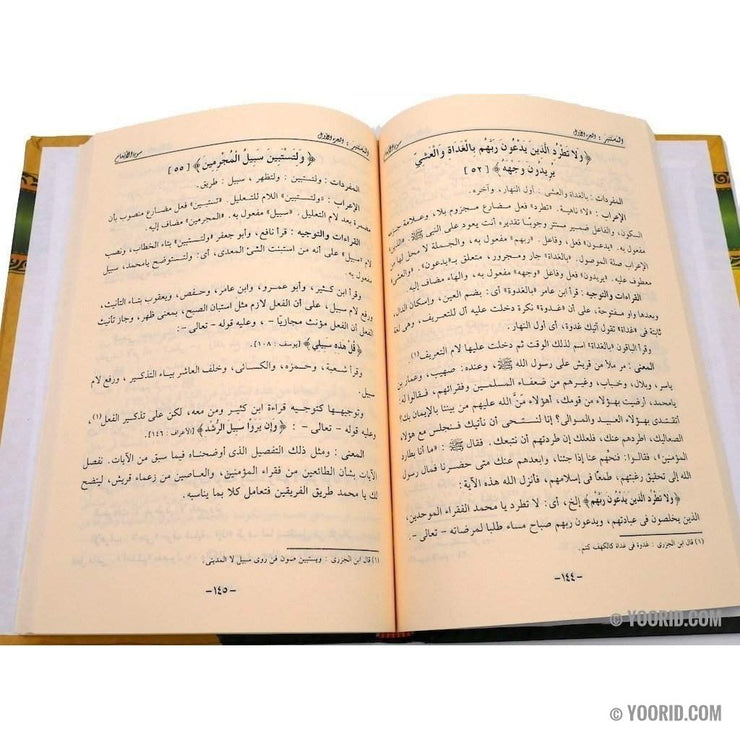 المستنير : الجزء الأول
سورة الأنعام
﴿ ولا تطرد الذين يدعون ربهم بالغداة والعشي
يريدون وجهه ﴾ [٥٢]
المفردات : بالغداة والعشى : أول النهار، وآخره.
الإعراب : «لا» ناهية. «تطرد» فعل مضارع مجزوم بلا، وعلامة جزمه
السكون، والفاعل ضمير مستتر وجوبا تقديره أنت يعود على النبى ﷺ. «الذين»
مفعول به. «يدعون» فعل، وفاعل. «ربهم» مفعول به، والجملة لا محل لها من
الإعراب صلة الموصول. «بالغداة» جار ومجرور، متعلق بـ«يدعون». «والعشي»
معطوف عليه. «يريدون» فعل وفاعل «وجهه» مفعول به، والهاء مضاف إليه.
القراءات والتوجيه : قرأ ابن عامر «بالغدوة» أى : بضم العين، وإسكان الدال،
وبعدها واو مفتوحة، على أن «غدوة» نكرة دخلت عليه آل للتعريف، وهى لغة
ثابتة فى «غداة» تقول أتيك غدوة، أى أول النهار.
وقرأ الباقون «بالغداة» اسم لذلك الوقت ثم دخلت عليها لام التعريف(١).
المعنى : مر ملأ من قريش على رسول الله ﷺ، وعنده : صهيب، وعمار بن
ياسر، وبلال، وخباب، وغيرهم من ضعفاء المسلمين وفقرائهم، فقالوا له:
يا محمد، أرضيت بهؤلاء من قومك، أهؤلاء منَّ الله عليهم من بيننا بالإيمان بك؟
أنقتدى بهؤلاء العبيد والموالى؟ إنا لنستحى أن نأتيك فنجلس مع هؤلاء
الصعاليك، اطردهم عنك، فلعلك إن طردتهم أن نتبعك. فقال ﷺ : «ما أنا بطارد
المؤمنين»، فقالوا : فنحهم عنا إذا جئنا، وابعدهم عنك متى حضرنا فمال رسول
الله إلى تحقيق رغبتهم، طمعًا فى إسلامهم، فأنزل الله هذه الآية :
﴿ولا تطرد الذين يدعون ربهم﴾ إلخ، أى : لا تطرد يا محمد الفقراء الموحدين،
الذين يخلصون فى عبادتهم، ويدعون ربهم صباح مساء طلبا لمرضاته - تعالى -.
(١) قال ابن الجزرى : غدوة فى غداة كالكهف كتم.
- ١٤٤ -
المستنير : الجزء الأول
سورة الأنعام
﴿ ولتستبين سبيل المجرمين ﴾ [٥٥]
المفردات : ولتستبين : ولتظهر، سبيل : طريق.
الإعراب : «ولتستبين» اللام للتعليل. «تستبين» فعل مضارع منصوب بأن
مضمرة بعد لام التعليل. «سبيل» مفعول به. «المجرمين» مضاف إليه.
القراءات والتوجيه : قرأ نافع، وأبو جعفر «ولتستبين» بتاء الخطاب، ونصب
لام «سبيل» على أنه من استبنت الشئ المعدى، أى : ولتستوضح يامحمد، سبيل
مفعول به.
وقرأ ابن كثير، وأبو عمرو، وابن عامر، وحفص، ويعقوب بتاء التأنيث،
ورفع لام سبيل، على أن الفعل لازم مثل استبان الصبح، بمعنى ظهر، وجاز تأنيث
الفعل لأن الفعل مؤنث مجازيا - ، وعليه قوله - تعالى - :
﴿ قل هذه سبيلي ﴾ [يوسف : ١٠٨].
وقرأ شعبة، وحمزة، والكسائى، وخلف العاشر بياء التذكير، ورفع لام
سبيل.
وتوجيهها كتوجيه قراءة ابن كثير ومن معه، لكن على تذكير الفعل(١)،
وعليه قوله - تعالى - : ﴿ وإن يروا سبيل الرشد ﴾ [الأعراف : ١٤٦].
المعنى : ومثل ذلك التفصيل الذى أوضحناه فيما سبق من الآيات. نفصل
الآيات بشأن الطائعين من فقراء المؤمنين، والعاصين من زعماء قريش، ليتضح
لك يا محمد طريق الفريقين فتعامل كلا بما يناسبه.
(١) قال ابن الجزرى : ويستبين صون فن روى سبيل لا المدينى.
- ١٤٥ -
© YOORID.COM
© YOORID.COM